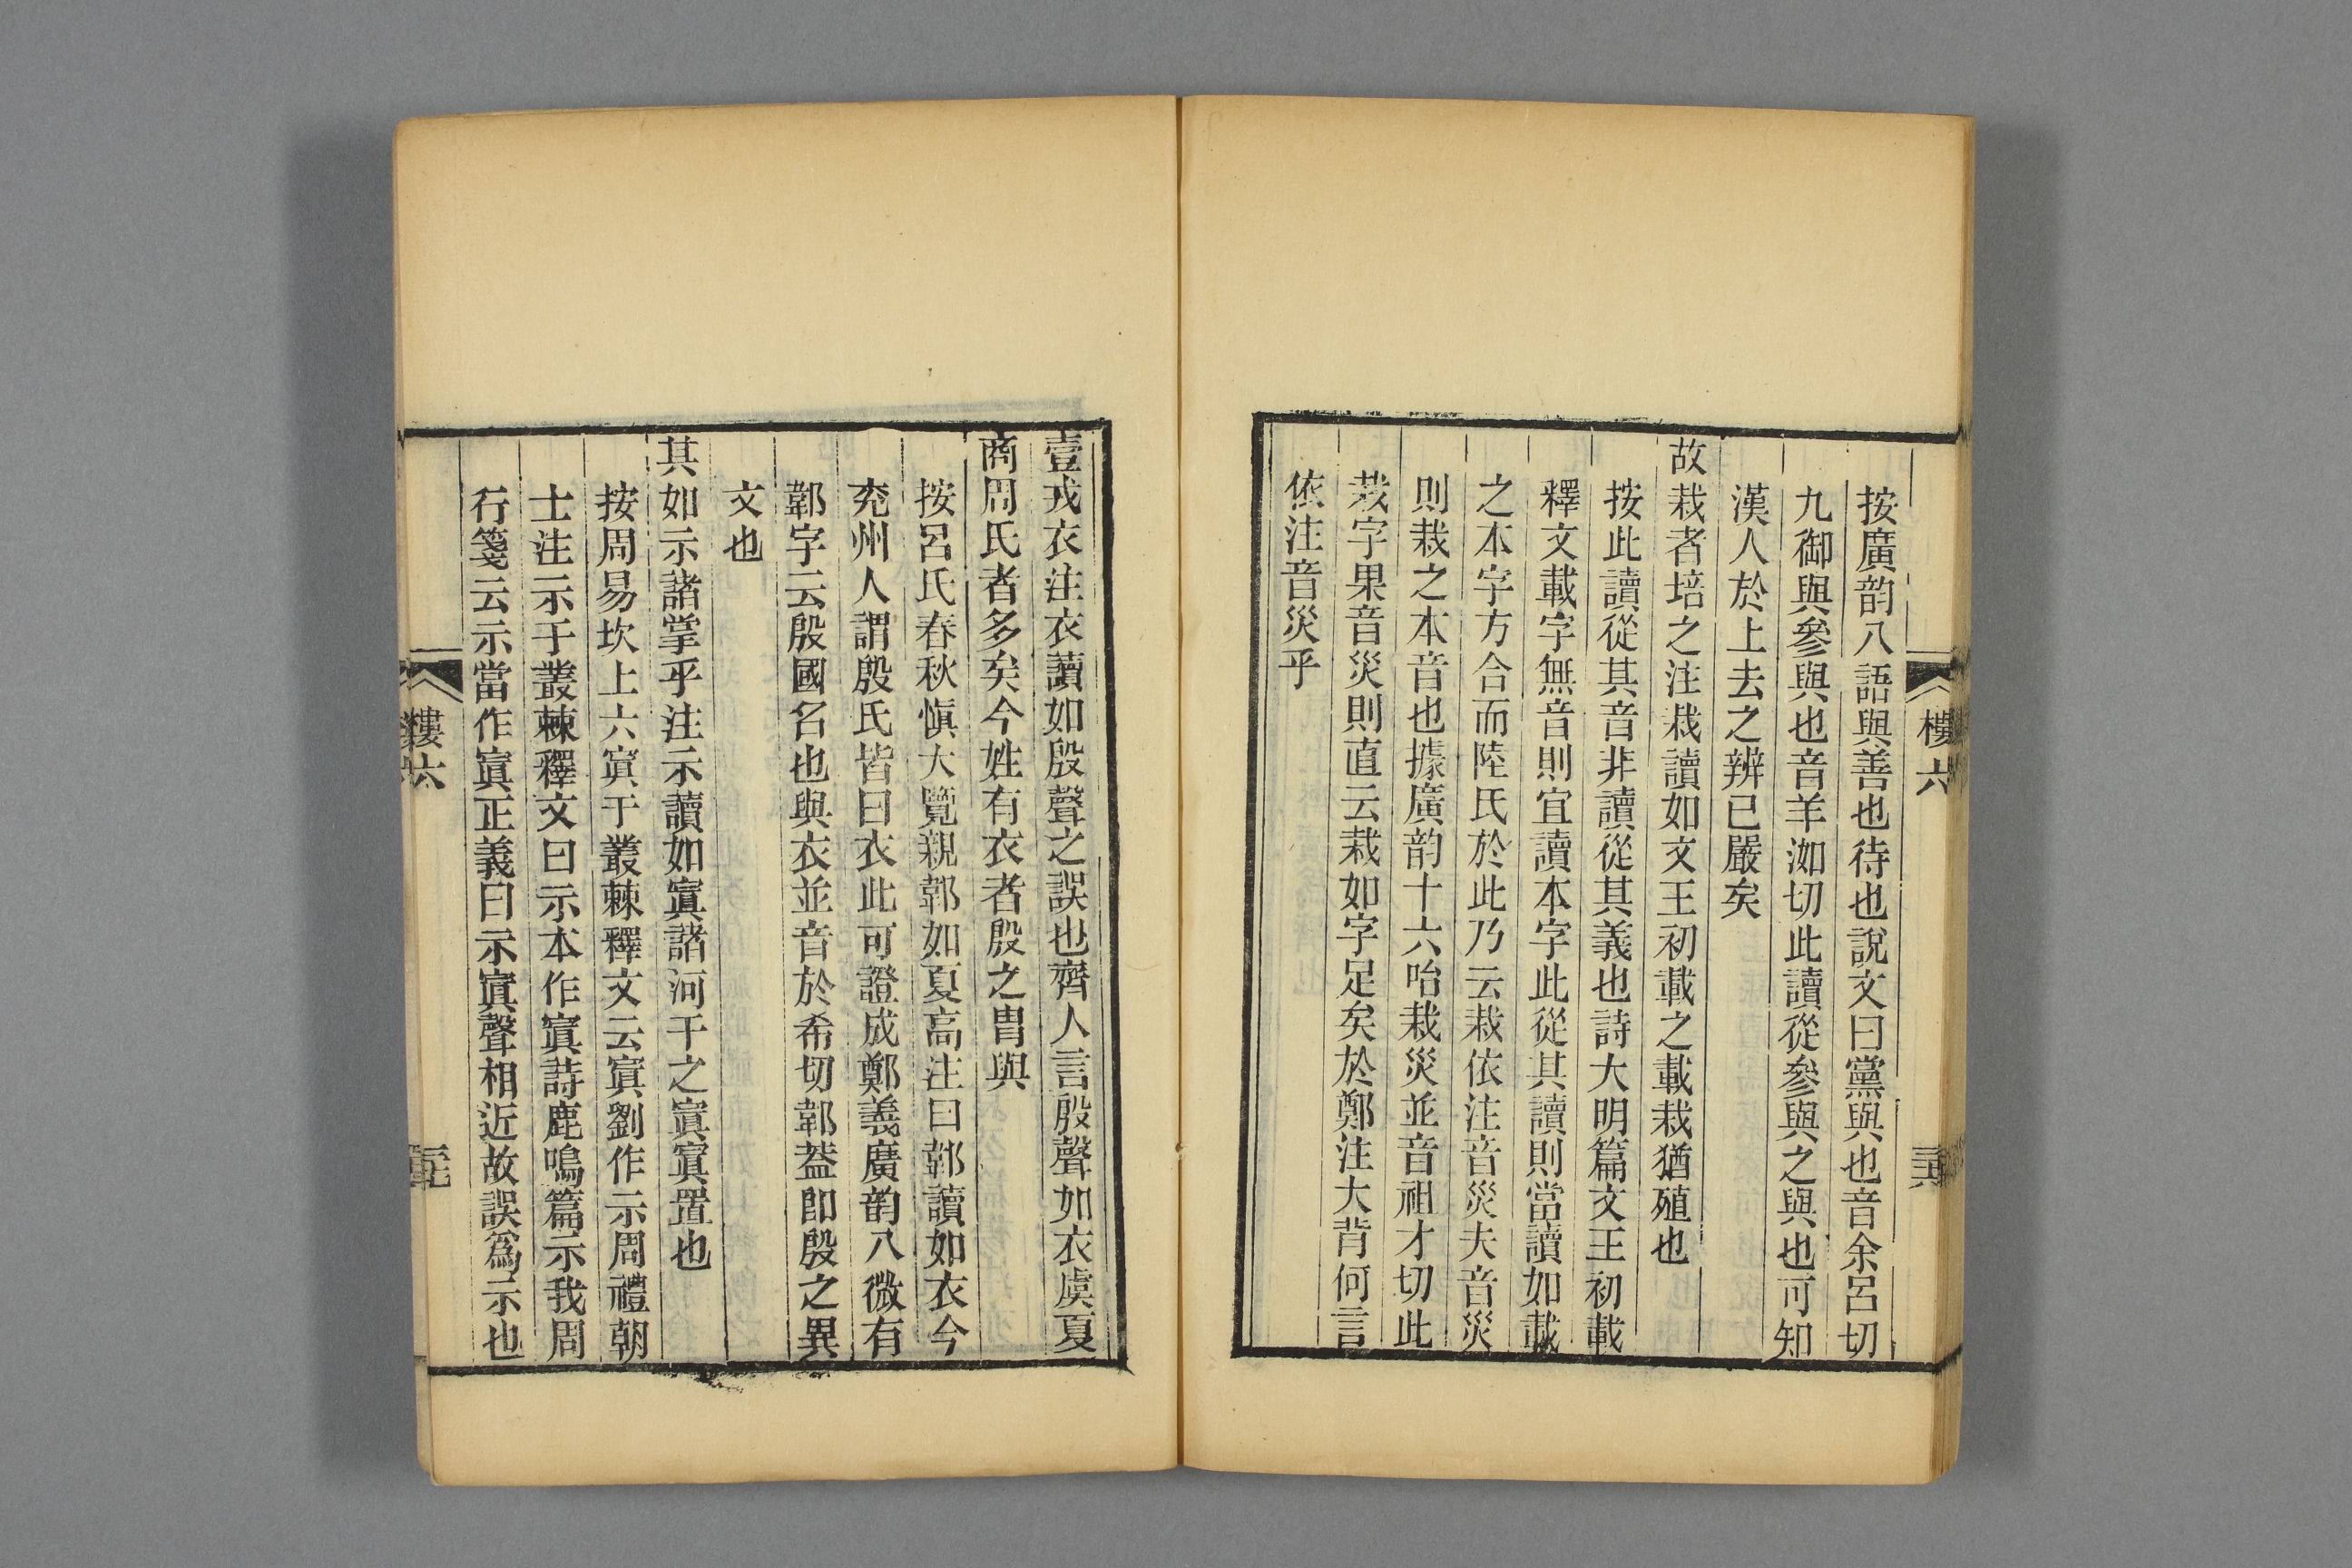 按廣韵八語與善也待也說文曰黨與也音余呂切
九御與參與也音羊洳切此讀從參與之與也可知
漢人於上去之辨已嚴矣
故栽者培之注栽讀如文王初載之載栽猶殖也
按此讀從其音非讀從其義也詩大明篇文王初載
釋文載字無音則宜讀本字此從其讀則當讀如載
之本字方合而陸氏於此乃云栽依注音災夫音災
則栽之本音也據廣韵十六咍栽災並音祖才切此
栽字果音災則直云栽如字足矣於鄭注大背何言
依注音災乎
樓六
壹戎衣注衣讀如殷聲之誤也齊人言殷聲如衣虞夏
商周氏者多矣今姓有衣者殷之冑與
按呂氏春秋愼大覽親郼如夏高注曰郼讀如衣今
兖州人謂殷氏皆曰衣此可證成鄭義廣韵八微有
郼字云殷國名也與衣並音於希切郼葢卽殷之異
文也
其如示諸掌乎注示讀如寘諸河干之寘寘置也
按周易坎上六寘于叢棘釋文云寘劉作示周禮朝
士注示于叢棘釋文曰示本作寘詩鹿鳴篇示我周
行箋云示當作寘正義曰示寘聲相近故誤爲示也
樓六